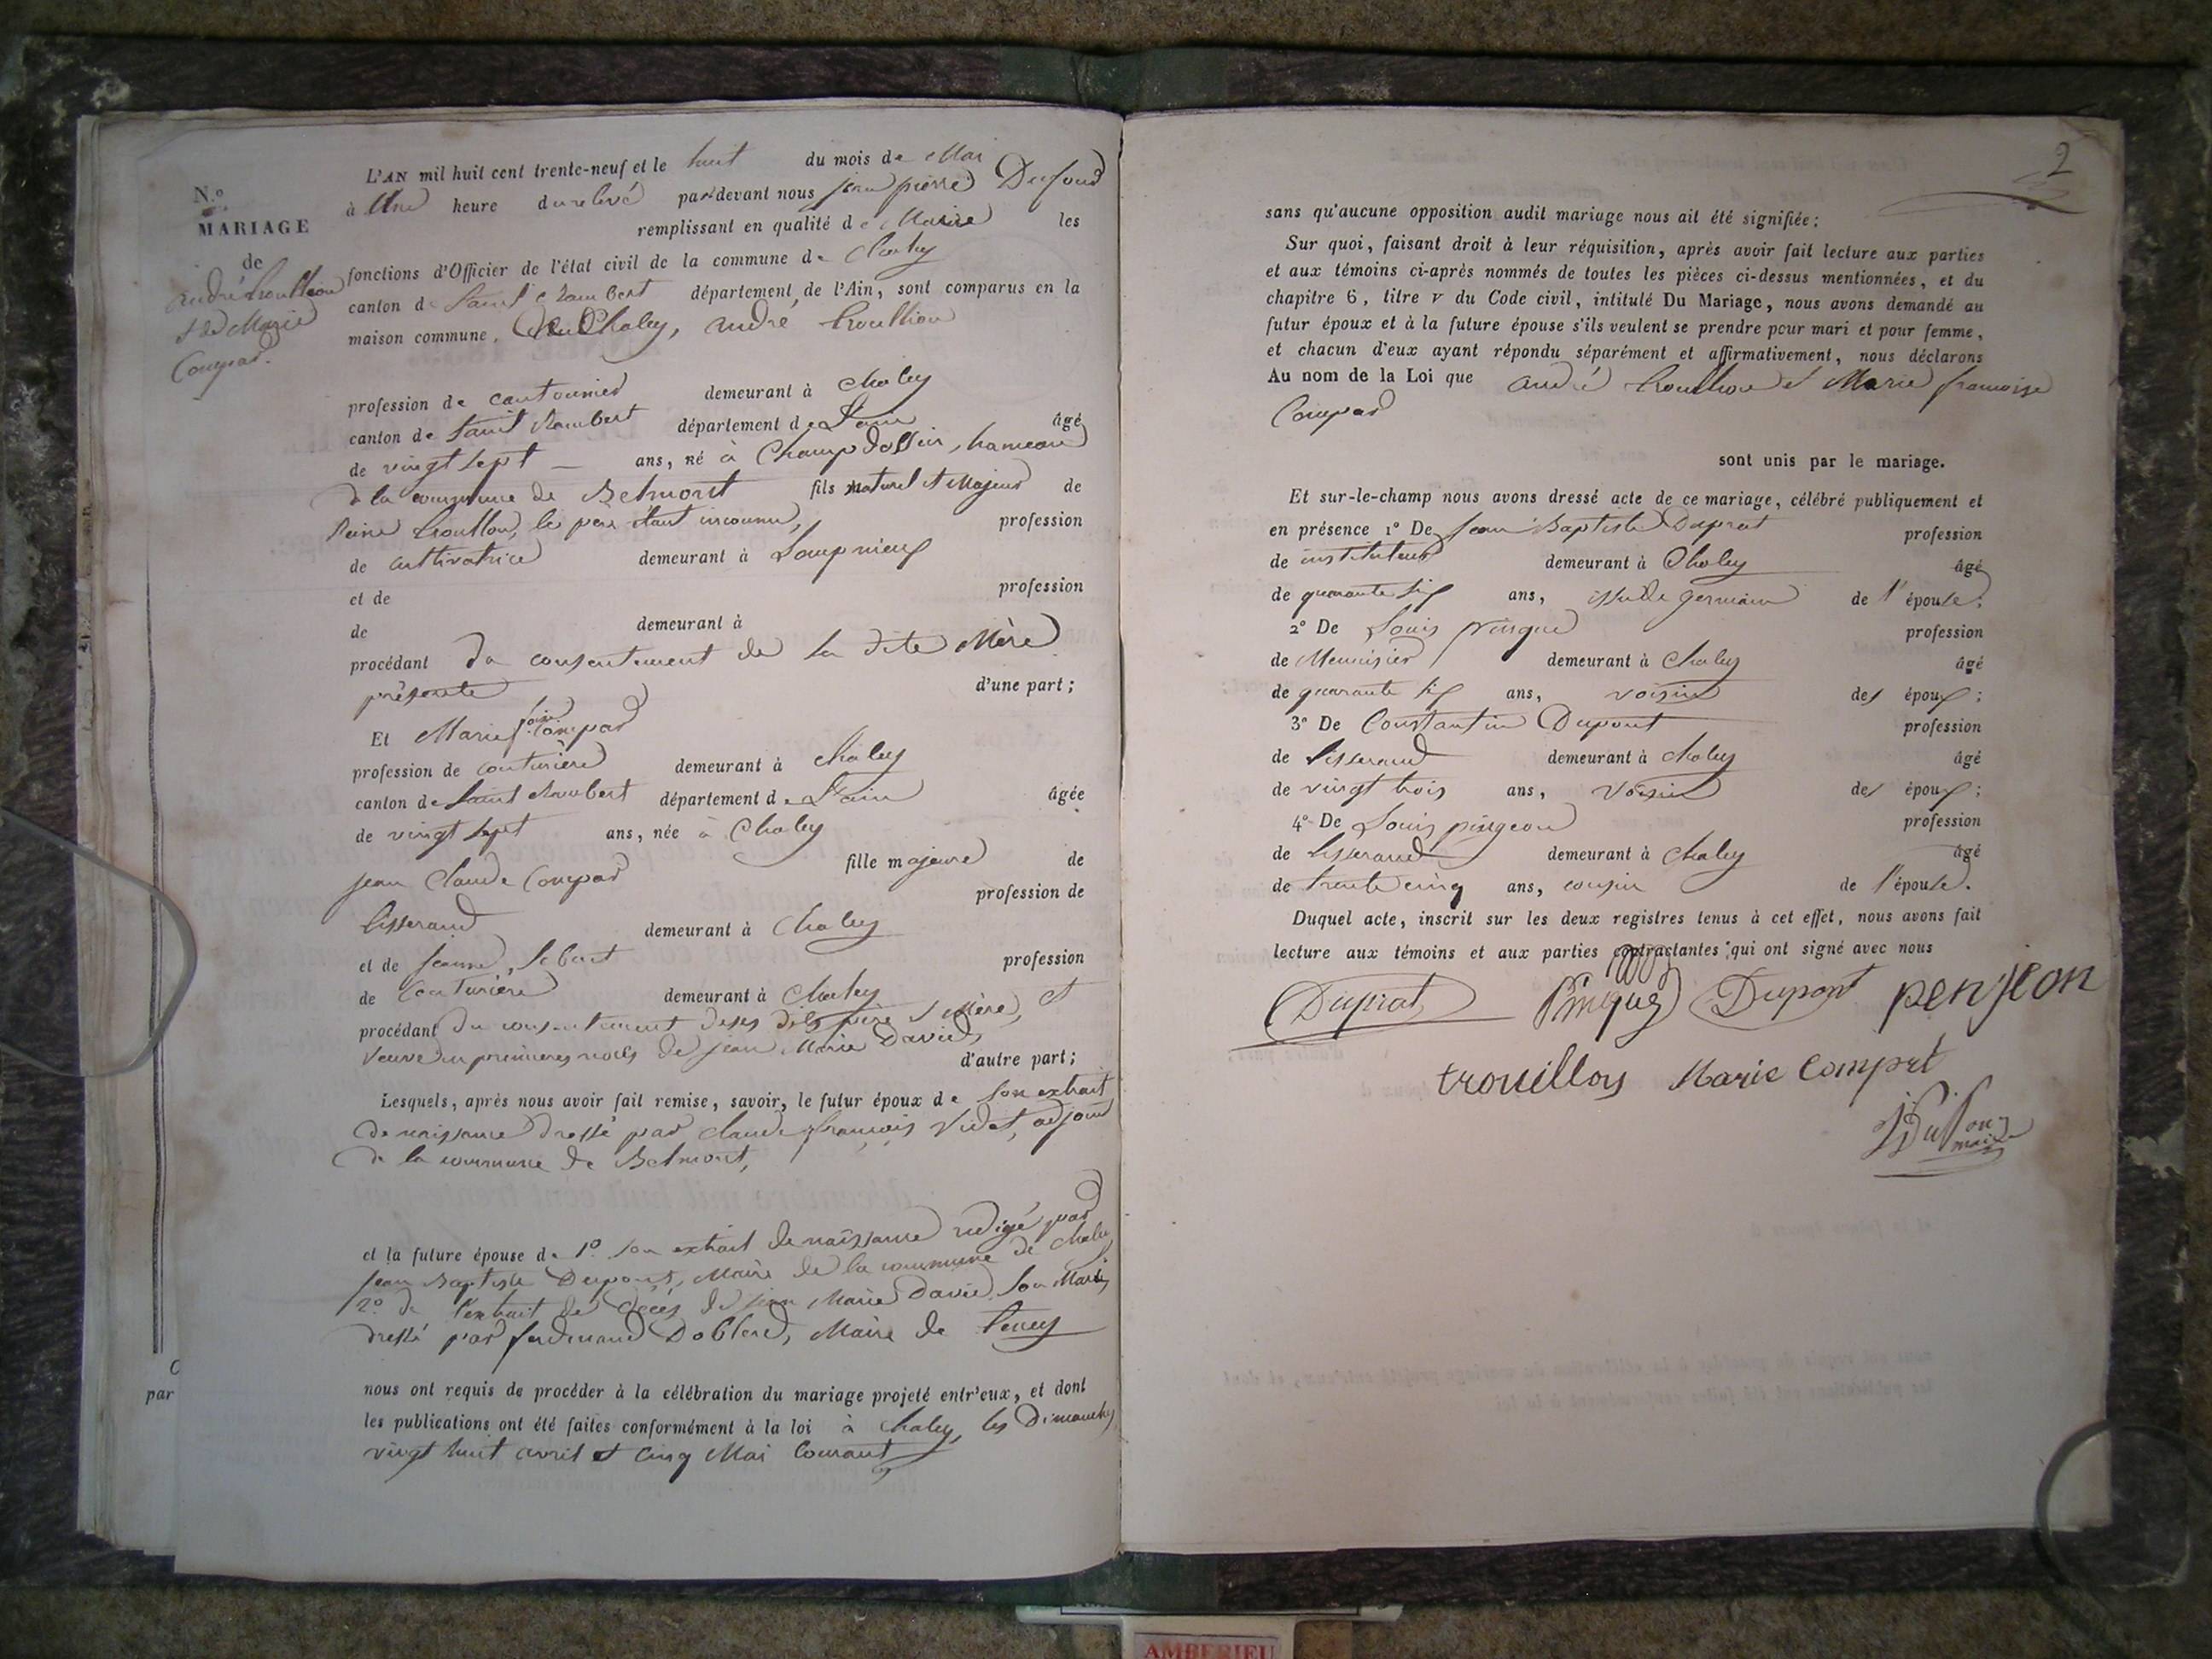 N.o
MARIAGE
de
andré trouillon
et de Marie
Compar.
L'AN mil huit cent trente-neuf et le huit du mois de Mai
à Une heure du relevé par devant nous jean pierre Dufour
remplissant en qualité de Maire les
fonctions d'Officier de l'état civil de la commune de Chaley
canton de Saint Rambert département de l'Ain, sont comparus en la
maison commune, de Chaley, andré trouillon
profession de cantonnier demeurant à Chaley
canton de Saint Rambert département de L'ain âgé
de vingt sept ans, né à Champdossin, hameau
de la commune de Belmont fils naturel et Majeur de
trouillon, le père étant inconnu, profession
de cultivatrice demeurant à Lompnieux
et de profession
de demeurant à
procédant du consentement de sa dite Mère
présente d'une part;
Et Marie f.oise Compar
profession de couturière demeurant à Chaley
canton de Saint Rambert département de L'ain âgée
de vingt sept ans, née à Chaley
fille majeure de
jean Claude Compar profession de
tisserand demeurant à Chaley
et de jeanne profession
de Couturière demeurant à Chaley
procédant du consentement de ses dits père et Mère, et
veuve en premières noces de jean Marie David, d'autre part;
Lesquels, après nous avoir fait remise, savoir, le futur époux de son extrait
de naissance dressé par Claude françois Videt, adjoint
de la commune de Belmont,
et la future épouse de 1.o son extrait de naissance redigé par
Jean Baptiste Dupont, Maire de la commune de Chaley
2.o de l'extrait de décès de jean Marie David son Mari,
dressé par ferdinand Maire de tenay
nous ont requis de procéder à la célébration du mariage projeté entr'eux, et dont
les publications ont été faites conformément à la loi à Chaley, les Dimanches
vingt huit avril et cinq Mai Courant
C
par
2
sans qu'aucune opposition audit mariage nous ait été signifiée;
Sur quoi, faisant droit à leur réquisition, après avoir fait lecture aux parties
et aux témoins ci-après nommés de toutes les pièces ci-dessus mentionnées, et du
chapitre 6, titre v du Code civil, intitulé Du Mariage, nous avons demandé au
futur époux et à la future épouse s'ils veulent se prendre pour mari et pour femme,
et chacun d'eux ayant répondu séparément et affirmativement, nous déclarons
Au nom de la Loi que andré trouillon et Marie françoise
Compar
sont unis par le mariage.
Et sur-le-champ nous avons dressé acte de ce mariage, célébré publiquement et
en présence 1o De Jean Baptiste Duprat profession
de instituteur demeurant à Chaley âgé
de quarante six ans, issu de germain de l'épouse;
2o De Louis pingue profession
de Menuisier demeurant à Chaley âgé
de quarante six ans, voisin des époux;
3o De Constantin Dupont profession
de tisserand demeurant à Chaley âgé
de vingt trois ans, voisin des époux;
4o De Louis pingeon profession
de tisserand demeurant à Chaley âgé
de trente cinq ans, cousin de l'épouse.
Duquel acte, inscrit sur les deux registres tenus à cet effet, nous avons fait
lecture aux témoins et aux parties contractantes qui ont signé avec nous
Duprat Dupont penjeon
trouillon Marie Compret
Dufour
maire
AMBERIEU